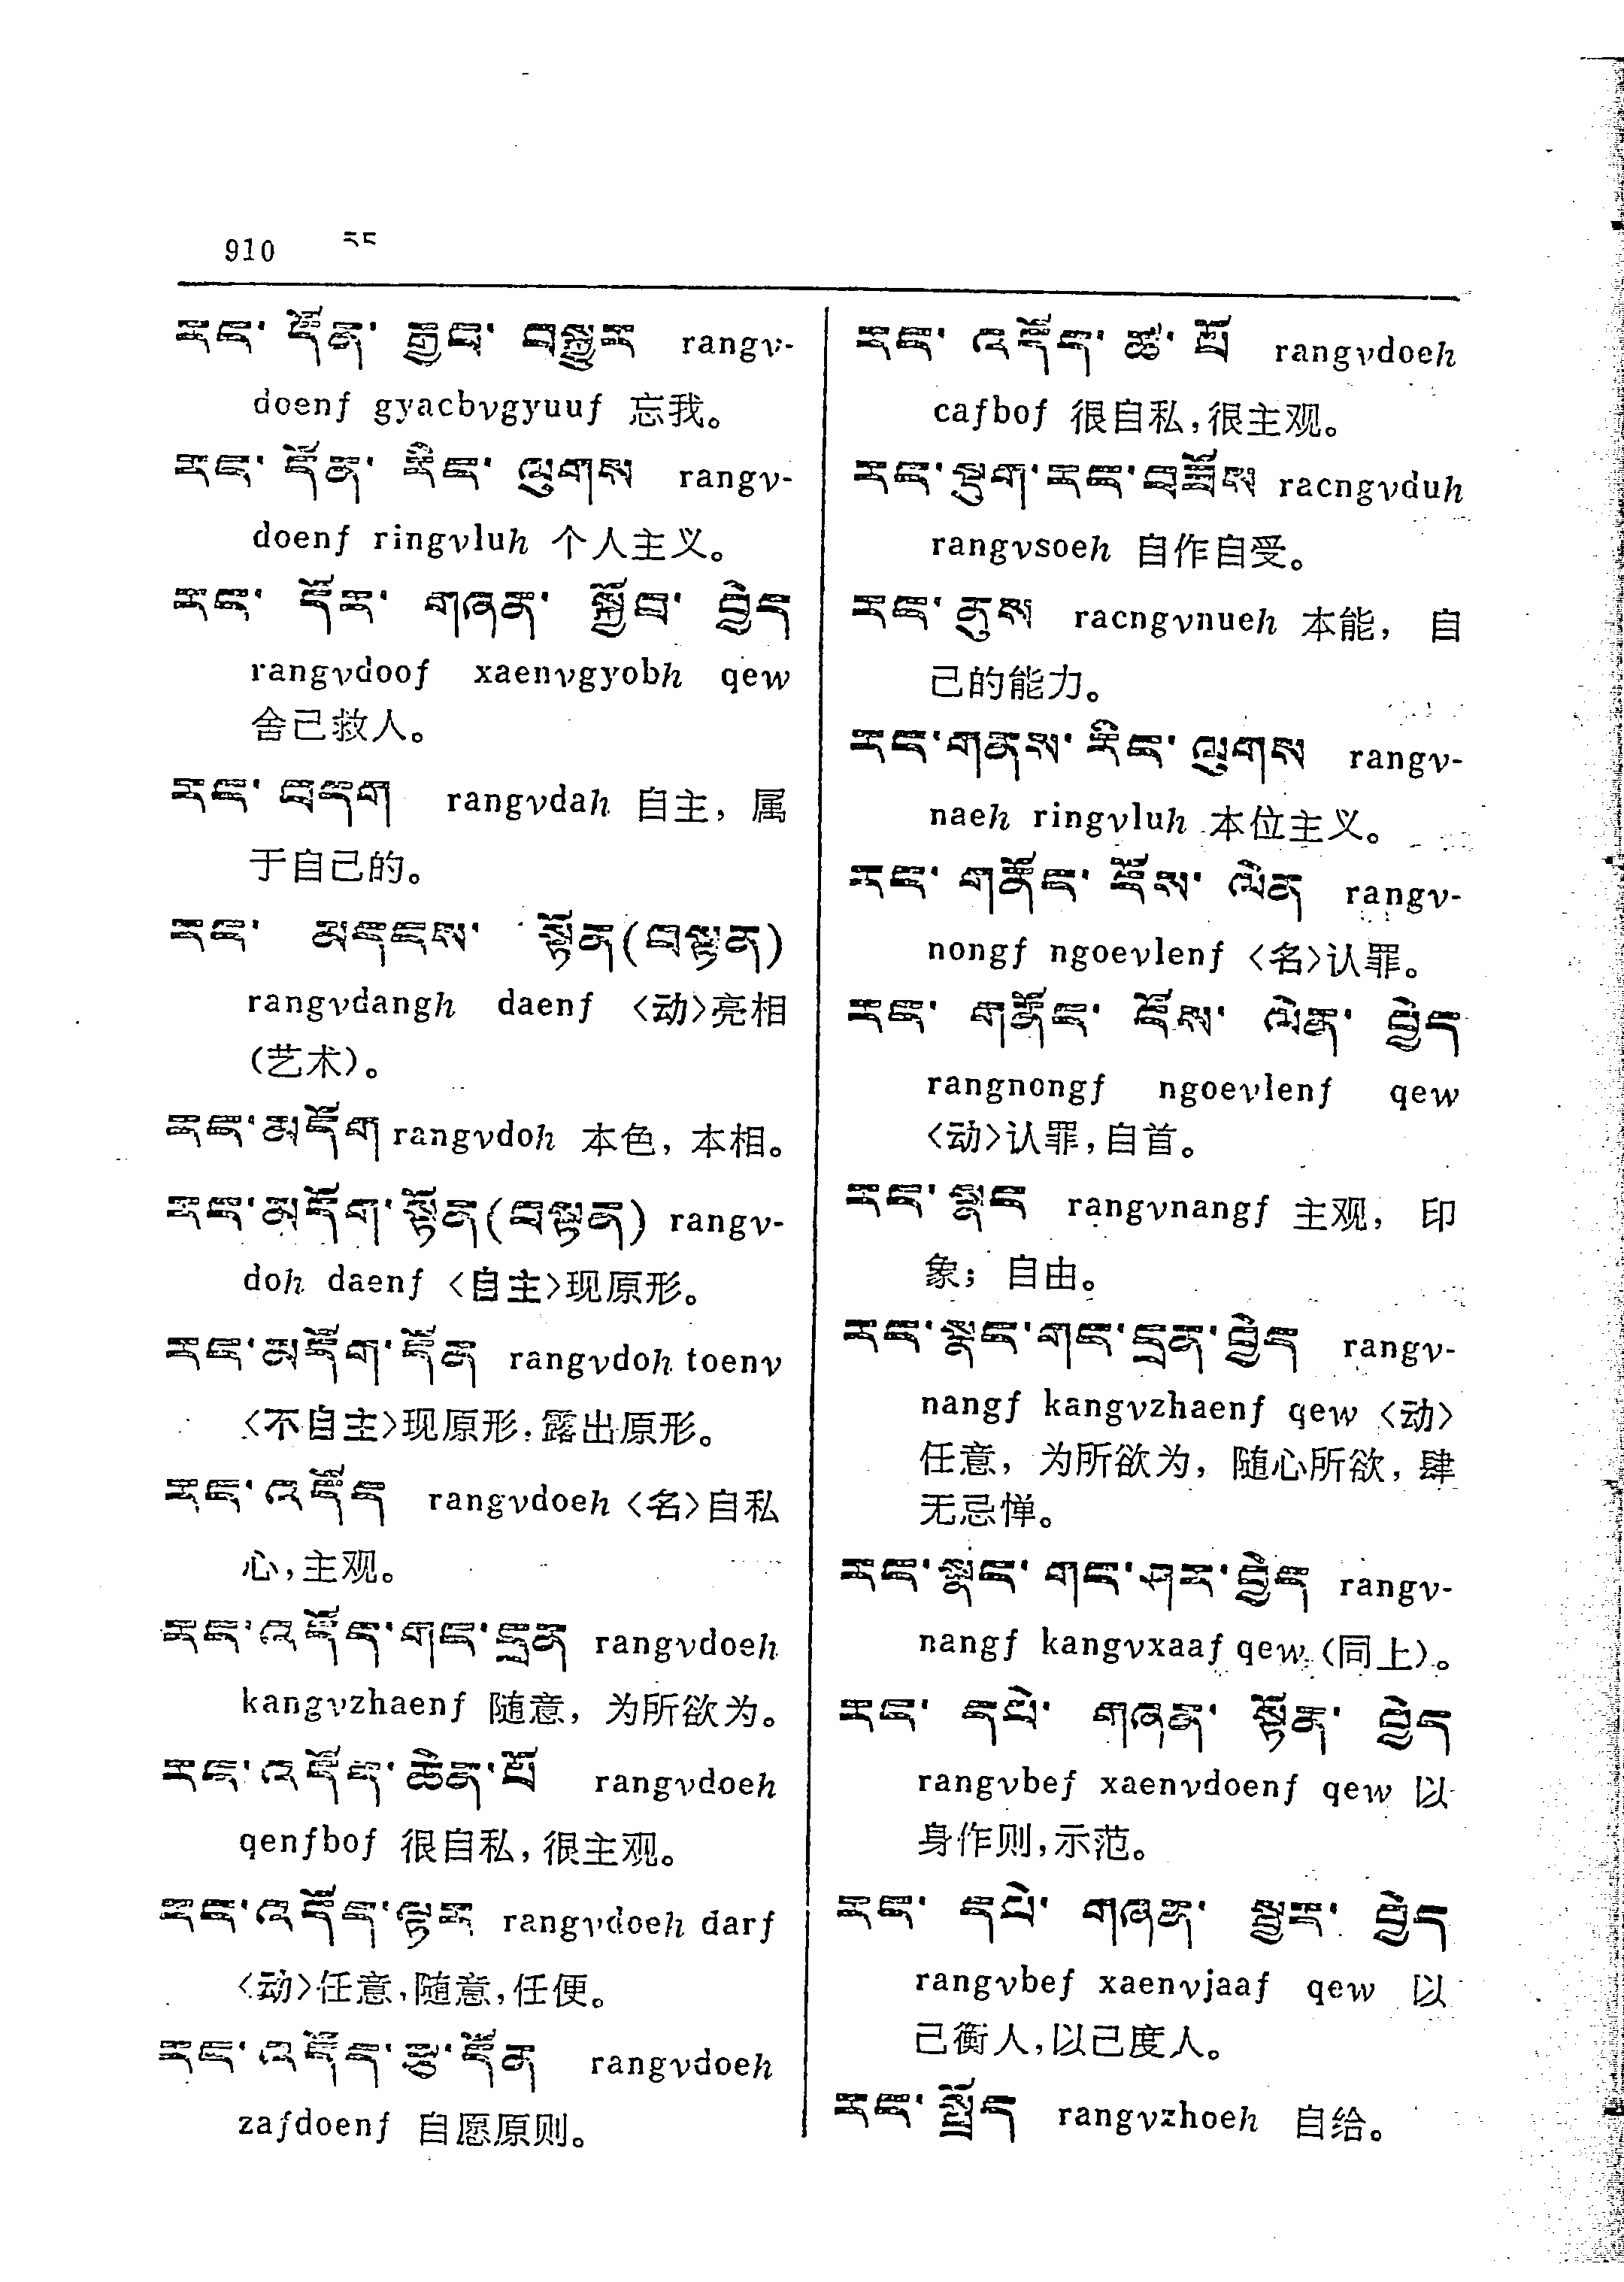 910 རང
རང་ དོན་ རྒྱབ་ བསྐྱུར rangv-
doenf gyacbvgyuuf 忘我。
རང་ དོན་ རིང་ ལུགས rangv-
doenf ringvluh 个人主义。
རང་ དོར་ གཞན་ སྐྱོབ་ བྱེད
rangvdoof xaenvgyobh qew
舍己救人。
རང་ བདག rangvdah 自主，属
于自己的。
རང་ མདངས་ སྟོན(བསྟན)
rangvdangh daenf 〈动〉亮相
(艺术)。
རང་མདོག rangvdoh 本色，本相。
རང་མདོག་སྟོན(བསྟན) rangv-
doh daenf 〈自主〉现原形。
རང་མདོག་དོན rangvdoh toenv
〈不自主〉现原形，露出原形。
རང་འདོད rangvdoeh 〈名〉自私
心，主观。
རང་འདོད་གང་དྲན rangvdoeh
kangvzhaenf 随意，为所欲为。
རང་འདོད་ཆེན་པོ rangvdoeh
qenfbof 很自私，很主观。
རང་འདོད་ལྟར rangvdoeh darf
〈动〉任意，随意，任便。
རང་འདོད་རྩ་དོན rangvdoeh
zafdoenf 自愿原则。
རང་ འདོད་ ཚ་ པོ rangvdoeh
cafbof 很自私，很主观。
རང་སྡུག་རང་བཟོས racngvduh
rangvsoeh 自作自受。
རང་ ནུས racngvnueh 本能， 自
己的能力。
རང་གནས་རིང་ལུགས rangv-
naeh ringvluh 本位主义。
རང་ གནོང་ ངོས་ ལེན rangv-
nongf ngoevlenf 〈名〉认罪。
རང་ གནོང་ ངོས་ ལེན་ བྱེད
rangnongf ngoevlenf qew
〈动〉认罪，自首。
རང་ སྣང rangvnangf 主观， 印
象； 自由。
རང་སྣང་གང་དྲན་བྱེད rangv-
nangf kangvzhaenf qew 〈动〉
任意，为所欲为，随心所欲，肆
无忌惮。
རང་སྣང་གང་ཤར་བྱེད rangv-
nangf kangvxaaf qew (同上)。
རང་ དཔེ་ གཞན་ སྟོན་ བྱེད
rangvbef xaenvdoenf qew 以
身作则，示范。
རང་ དཔེ་ གཞན་ སྦྱར་ བྱེད
rangvbef xaenvjaaf qew 以
己衡人，以己度人。
རང་སྤྲོད rangvzhoeh 自给。